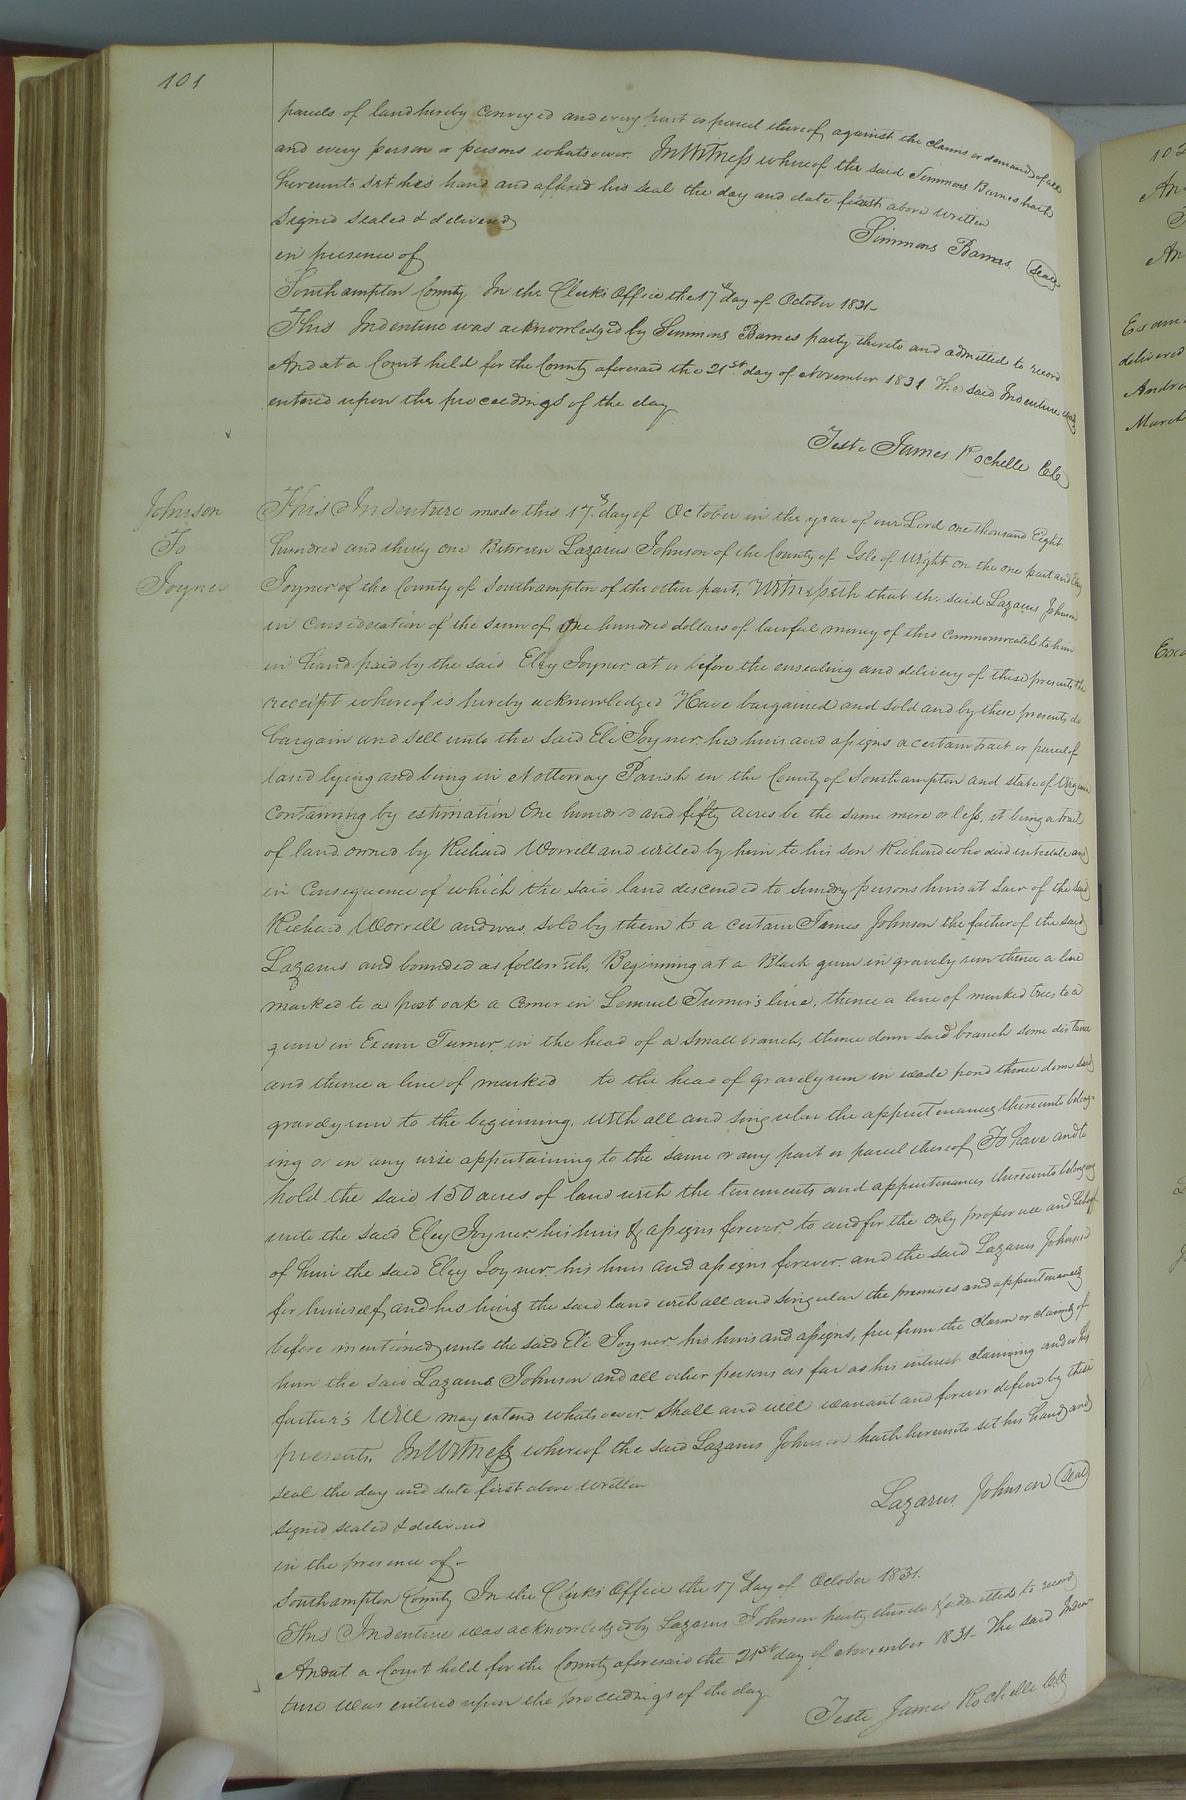 101
parcels of land hereby Conveyed and every part or parcel thereof against the claims or demands of all
and every person or persons whatsoever. In Witness whereof the said Simmons Barnes hath
hereunto set his hand and affixed his seal the day and date first above written
Signed sealed & delivered
Simmons Barnes. Seal
in presence of
Southampton County In the Clerk's Office the 17th day of October 1831-
This Indenture was acknowledged by Simmons Barnes party thereto and admitted to record
And at a Court held for the County aforesaid the 21st day of November 1831 The said Indenture was
entered upon the proceedings of the day
Teste James Rochelle Clk
Johnson
To
Joyner
This Indenture made this 17th day of October in the year of our Lord one thousand Eight
hundred and thirty one Between Lazarus Johnson of the County of Isle of Wight on the one part and Eley
Joyner of the County of Southampton of the other part, Witnesseth that the said Lazarus Johnson
in Consideration of the sum of One hundred dollars of lawful money of this Commonwealth to him
in hand paid by the said Eley Joyner at or before the ensealing and delivery of these presents, the
receipt whereof is hereby acknowledged Have bargained and sold and by these presents do
bargain and sell unto the said Eli Joyner his heirs and assigns a certain tract or parcel of
land lying and being in Nottoway Parish in the County of Southampton and state of Virginia
Containing by estimation One hundred and fifty acres be the same more or less, it being a tract
of land owned by Richard Worrell and willed by him to his son Richard who died intestate and
in Consequence of which the said land descended to sundry persons heirs at law of the said
Richard Worrell and was sold by them to a certain James Johnson the father of the said
Lazarus and bounded as followeth, Beginning at a Black gum in gravely run thence a line
marked to a post oak a Corner in Lemuel Turner's line, thence a line of marked trees to a
gum in Exum Turner, in the head of a small branch, thence down said branch some distance
and thence a line of marked to the head of gravely run in wade pond thence down said
gravely run to the beginning, with all and singular the appurtenances thereunto belong-
ing or in any wise appertaining to the same or any part or parcel thereof To have and to
hold the said 150 acres of land with the tenements and appurtenances thereunto belonging
unto the said Eley Joyner his heirs & assigns forever, to and for the only proper use and behoof
of him the said Eley Joyner his heirs and assigns forever. and the said Lazarus Johnson
for himself and his heirs the said land with all and singular the premises and appurtenances
before mentioned unto the said Eli Joyner his heirs and assigns, free from the claim or claims of
him the said Lazarus Johnson and all other persons as far as his interest claiming under his
father's Will may extend whatsoever. Shall and will warrant and forever defend by these
presents. In Witness whereof the said Lazarus Johnson hath hereunto set his hand and
seal the day and date first above written
Lazarus Johnson Seal
Signed sealed & delivered
in the presence of-
Southampton County In the Clerk's Office the 17th day of October 1831.
This Indenture was acknowledged by Lazarus Johnson party thereto & admitted to record
And at a Court held for the County aforesaid the 21st day of November 1831- The said Inden-
ture was entered upon the proceedings of the day
Teste James Rochelle Clk
102
delivered